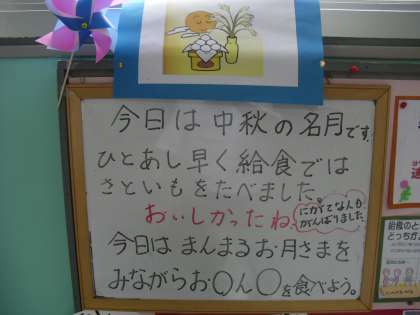 今日は中秋の名月です。
ひとあし早く給食では
さといもをたべました。
おいしかったね
にがてな人も
がんばりました。
今日はまんまるお月さまを
みながらお〇ん〇を食べよう。
給食のと
どっちか